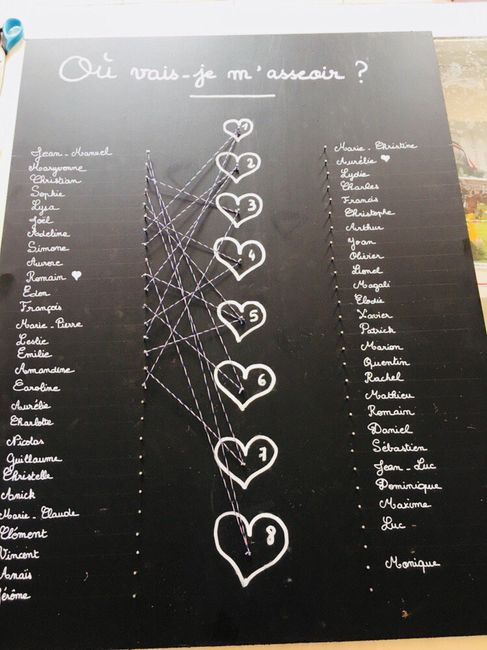 Où vais-je m'asseoir ?
Jean-Manuel
Maryvonne
Christian
Sophie
Lysa
Joël
Adeline
Simone
Aurore
Romain
Eden
François
Marie-Pierre
Leslie
Emilie
Amandine
Caroline
Aurélie
Charlotte
Nicolas
Guillaume
Christelle
Anick
Marie-Claude
Clément
Vincent
Anaïs
Jérôme
1
2
3
4
5
6
7
8
Marie-Christine
Aurélie
Lydie
Charles
Francis
Christophe
Arthur
Yoan
Olivier
Lionel
Magali
Elodie
Xavier
Patrick
Marion
Quentin
Rachel
Mathieu
Romain
Daniel
Sébastien
Jean-Luc
Dominique
Maxime
Luc
Monique